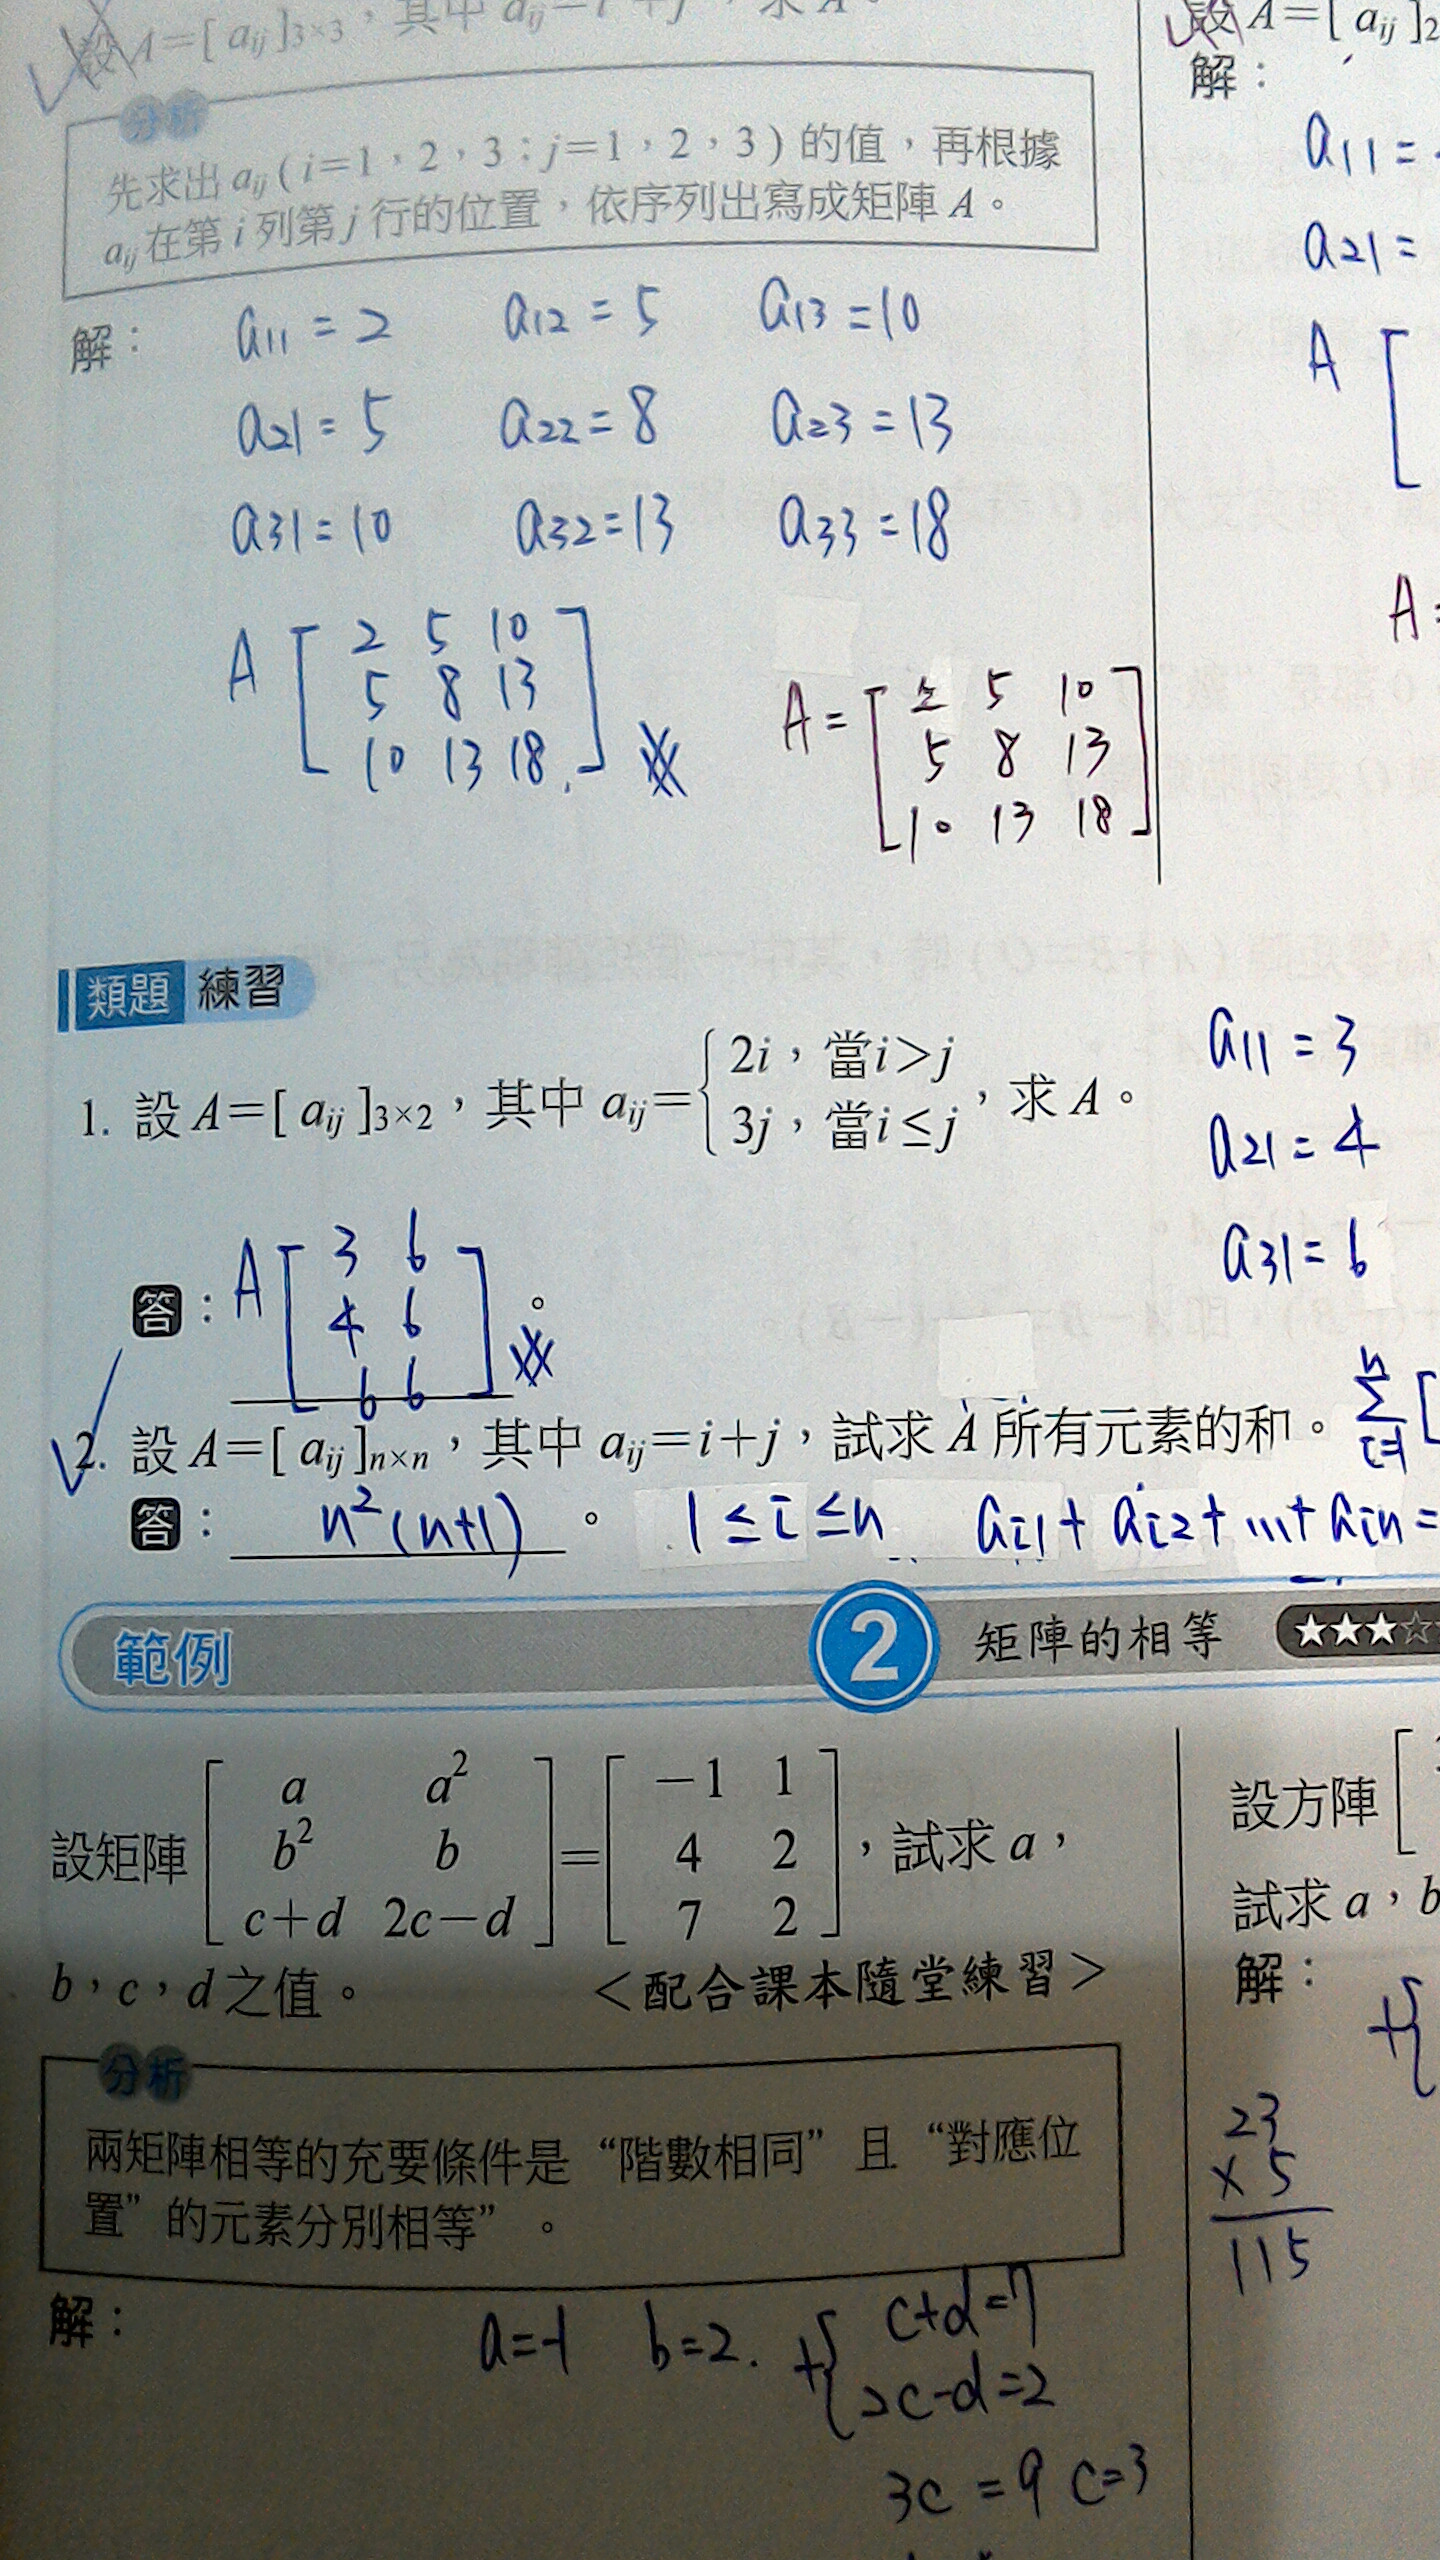 設 A=[ aij ]3×3，其中 aij=i²+j²，求 A。
分析
先求出 aij ( i=1，2，3；j=1，2，3 ) 的值，再根據
aij 在第 i 列第 j 行的位置，依序列出寫成矩陣 A。
解：
a11 = 2 a12 = 5 a13 = 10
a21 = 5 a22 = 8 a23 = 13
a31 = 10 a32 = 13 a33 = 18
A [ 2 5 10
5 8 13
10 13 18 ]
A = [ 2 5 10
5 8 13
10 13 18 ]
設 A=[ aij ]2
解：
a11 =
a21 =
A [
A =
類題 練習
1. 設 A=[ aij ]3×2，其中 aij={ 2i，當 i>j
3j，當 i≤j ，求 A。
a11 = 3
a21 = 4
a31 = 6
答：A [ 3 6
4 6
6 6 ] 。
2. 設 A=[ aij ]n×n，其中 aij=i+j，試求 A 所有元素的和。
n
Σ [
i=1
答： n²(n+1) 。 1≤i≤n ai1+ai2+...+ain=
範例 2 矩陣的相等 ★★★☆
設矩陣 [ a a²
b² b
c+d 2c−d ] = [ −1 1
4 2
7 2 ] ，試求 a，
b，c，d 之值。 <配合課本隨堂練習>
分析
兩矩陣相等的充要條件是“階數相同”且“對應位
置”的元素分別相等”。
解：
a=-1 b=2. +{ c+d=7
2c-d=2
3c = 9 c=3
設方陣 [
試求 a，b
解：
+{
23
× 5
115